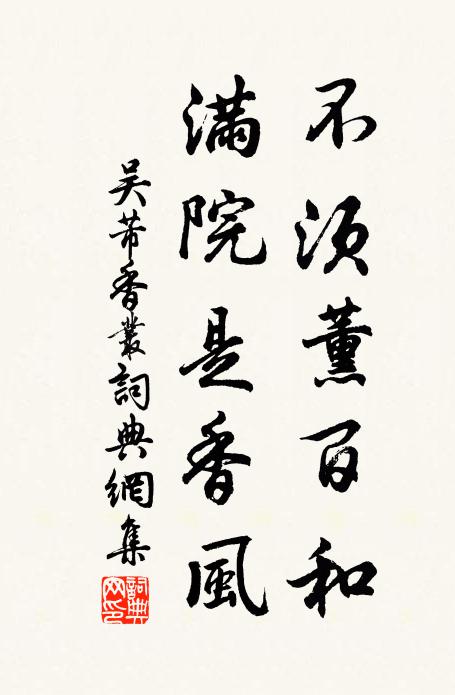 不須薰百和
滿院是香風
吴芾香叢詞典網集
詞典網印